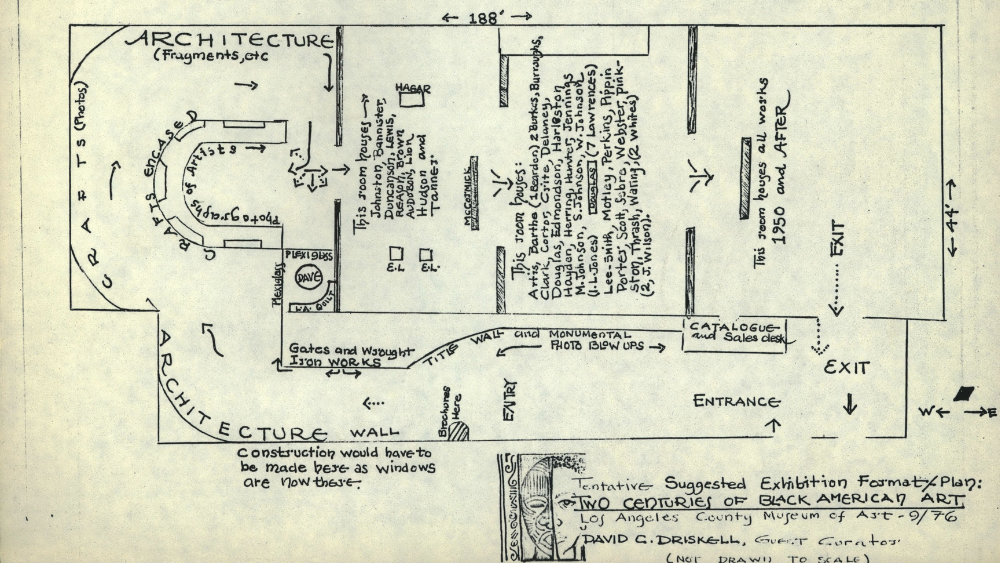 188'
ARCHITECTURE
(Fragments, etc
CRAFTS (Photos)
CRAFTS ENCASED
Photographs of Artists
PLEXIGLASS
Plexiglass
DAVE
QUILT
HAGAR
This room houses
Johnston, Bannister,
Duncanson, LEWIS,
REASON, Brown
AUDOBON, Lion
Hudson and
Tanner.
E.L.
E.L.
McCORMICK
This room houses:
Artis, Barthe (1 Bearden) 2 Burkes, Burroughs,
Clark, Cortor, Crite, Delaney,
Douglas, Edmondson, Harleston
Hayden, Herring, Hunter, Jennings
M. Johnson, S. Johnson, W. Johnson
(1. L. Jones) DOUGLAS (7 Lawrences)
Lee-Smith, Motley, Perkins, Pippin
Porter, Scott, Sebree, Webster, Pink-
ston, Thrash, Waring, (2 Whites)
(2, J. Wilson).
This room houses all works
1950 and AFTER
44'
EXIT
Gates and Wrought
Iron WORKS
TITLE WALL and MONUMENTAL
PHOTO BLOW UPS
CATALOGUE
and Sales desk
EXIT
ARCHITECTURE WALL
Brochures
Here
ENTRY
ENTRANCE
W E
Construction would have to
be made here as windows
are now there.
Tentative Suggested Exhibition Format/Plan:
TWO CENTURIES OF BLACK AMERICAN ART
Los Angeles County Museum of Art - 9/76
DAVID C. DRISKELL, Guest Curator
(NOT DRAWN TO SCALE)